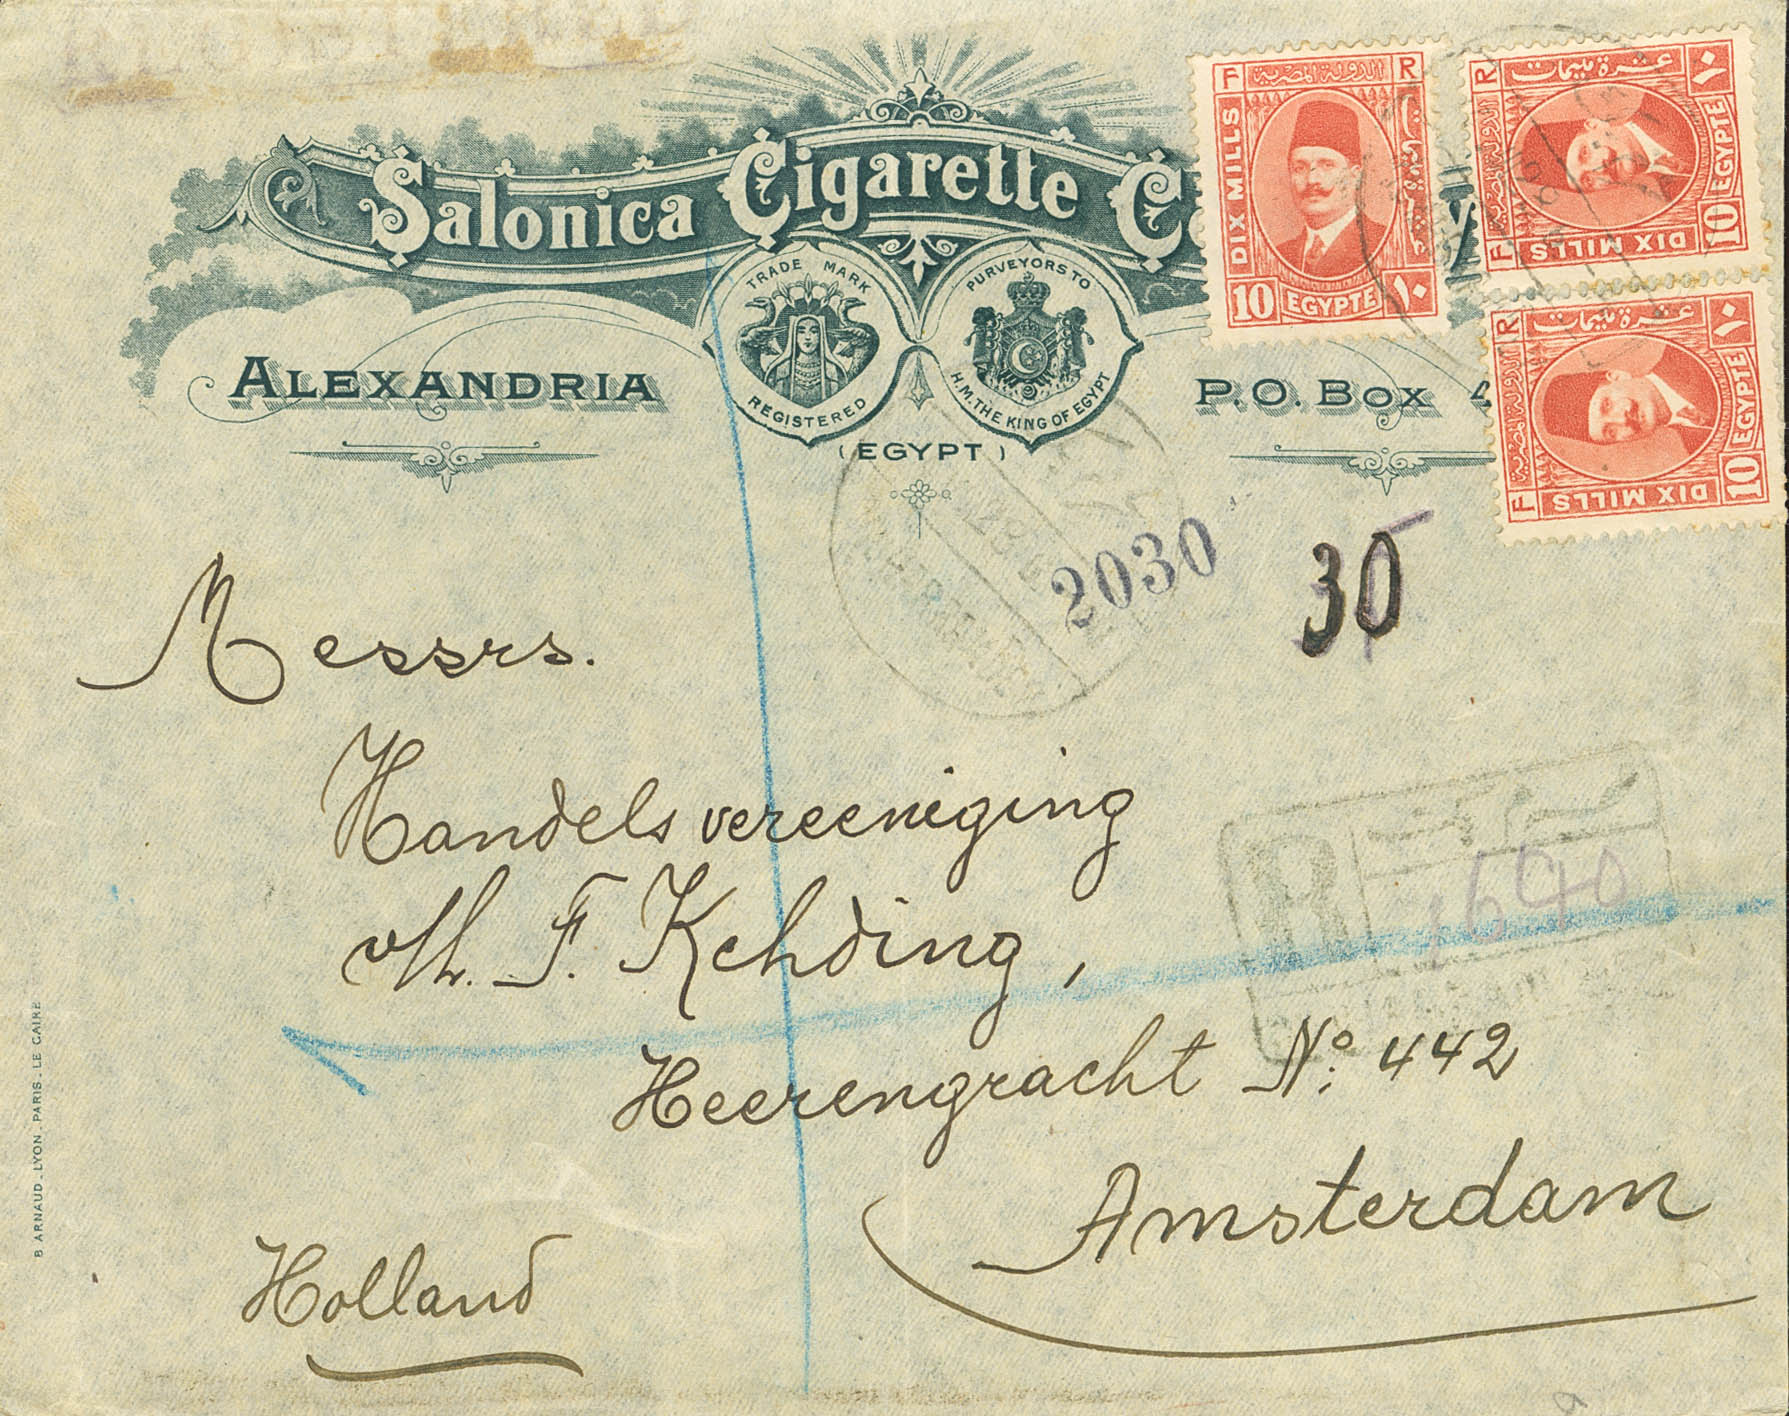 Salonica Cigarette
TRADE MARK
REGISTERED
PURVEYORS TO
H.M. THE KING OF EGYPT
ALEXANDRIA
(EGYPT)
P.O. Box
F الدولة المصرية R
DIX MILLS
10 EGYPTE ١٠
F R
الدولة المصرية
عشرة مليمات ١٠
DIX MILLS
10 EGYPTE
F R
الدولة المصرية
عشرة مليمات ١٠
DIX MILLS
10 EGYPTE
2030
30
Messrs.
Handelsvereeniging
v/h. F. Kehding,
R
1640
Heerengracht No. 442
Amsterdam
Holland
B ARNAUD_LYON_PARIS_LE CAIRE